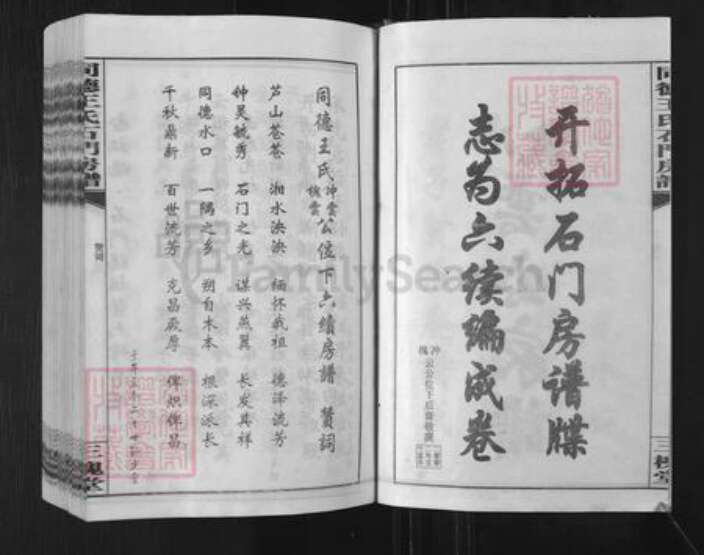 开拓石门房谱牒
志为六续编成卷
冲
槐
云公位下后裔敬撰
同德王氏石门房谱
三槐堂
同德王氏
冲云
槐云
公位下六续房谱 赞词
芦山苍苍 湘水泱泱 缅怀我祖 德泽流芳
钟灵毓秀 石门之光 谋兴燕翼 长发其祥
同德水口 一隅之乡 朔自木本 根深派长
千秋鼎新 百世流芳 克昌厥厚 俾炽俾昌
同德王氏石门房谱
赞词
三槐堂
FamilySearch